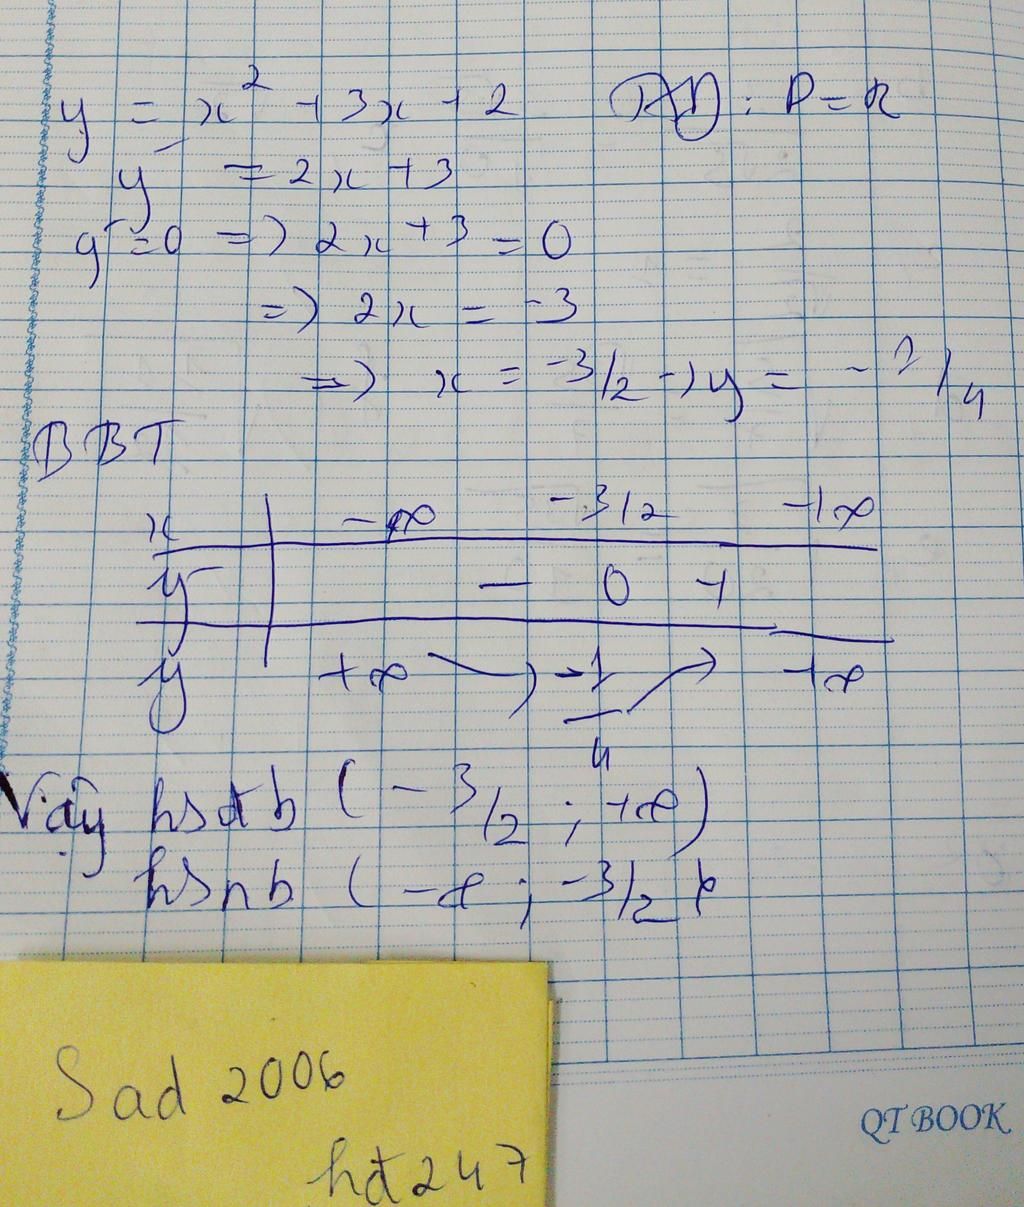 y = x² + 3x + 2 TXĐ: D = R
y' = 2x + 3
y' = 0 => 2x + 3 = 0
=> 2x = -3
=> x = -3/2 -> y = -1/4
BBT
x -∞ -3/2 +∞
y' - 0 +
y +∞ ↘ -1/4 ↗ +∞
Vậy hsđb (-3/2 ; +∞)
hsnb (-∞ ; -3/2)
Sad 2006
hđ247
QT BOOK